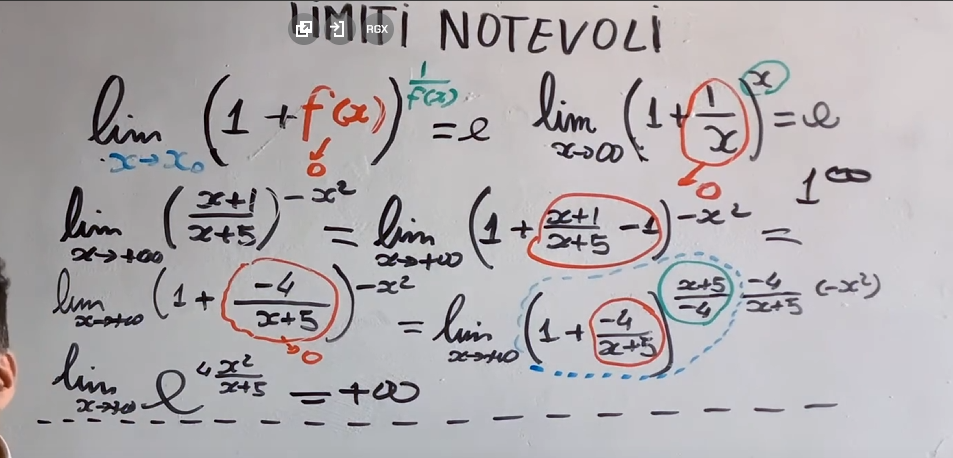 LIMITI NOTEVOLI
RGX
lim x→x₀ (1 + f(x))^(1/f(x)) = e    lim x→∞ (1 + 1/x)^x = e
0    0    1^∞
lim x→+∞ ((x+1)/(x+5))^(-x²) = lim x→+∞ (1 + (x+1)/(x+5) - 1)^(-x²) =
lim x→+∞ (1 + (-4)/(x+5))^(-x²) = lim x→+∞ (1 + (-4)/(x+5))^((x+5)/(-4) · (-4)/(x+5) (-x²))
0
lim x→+∞ e^(4 x²/(x+5)) = +∞